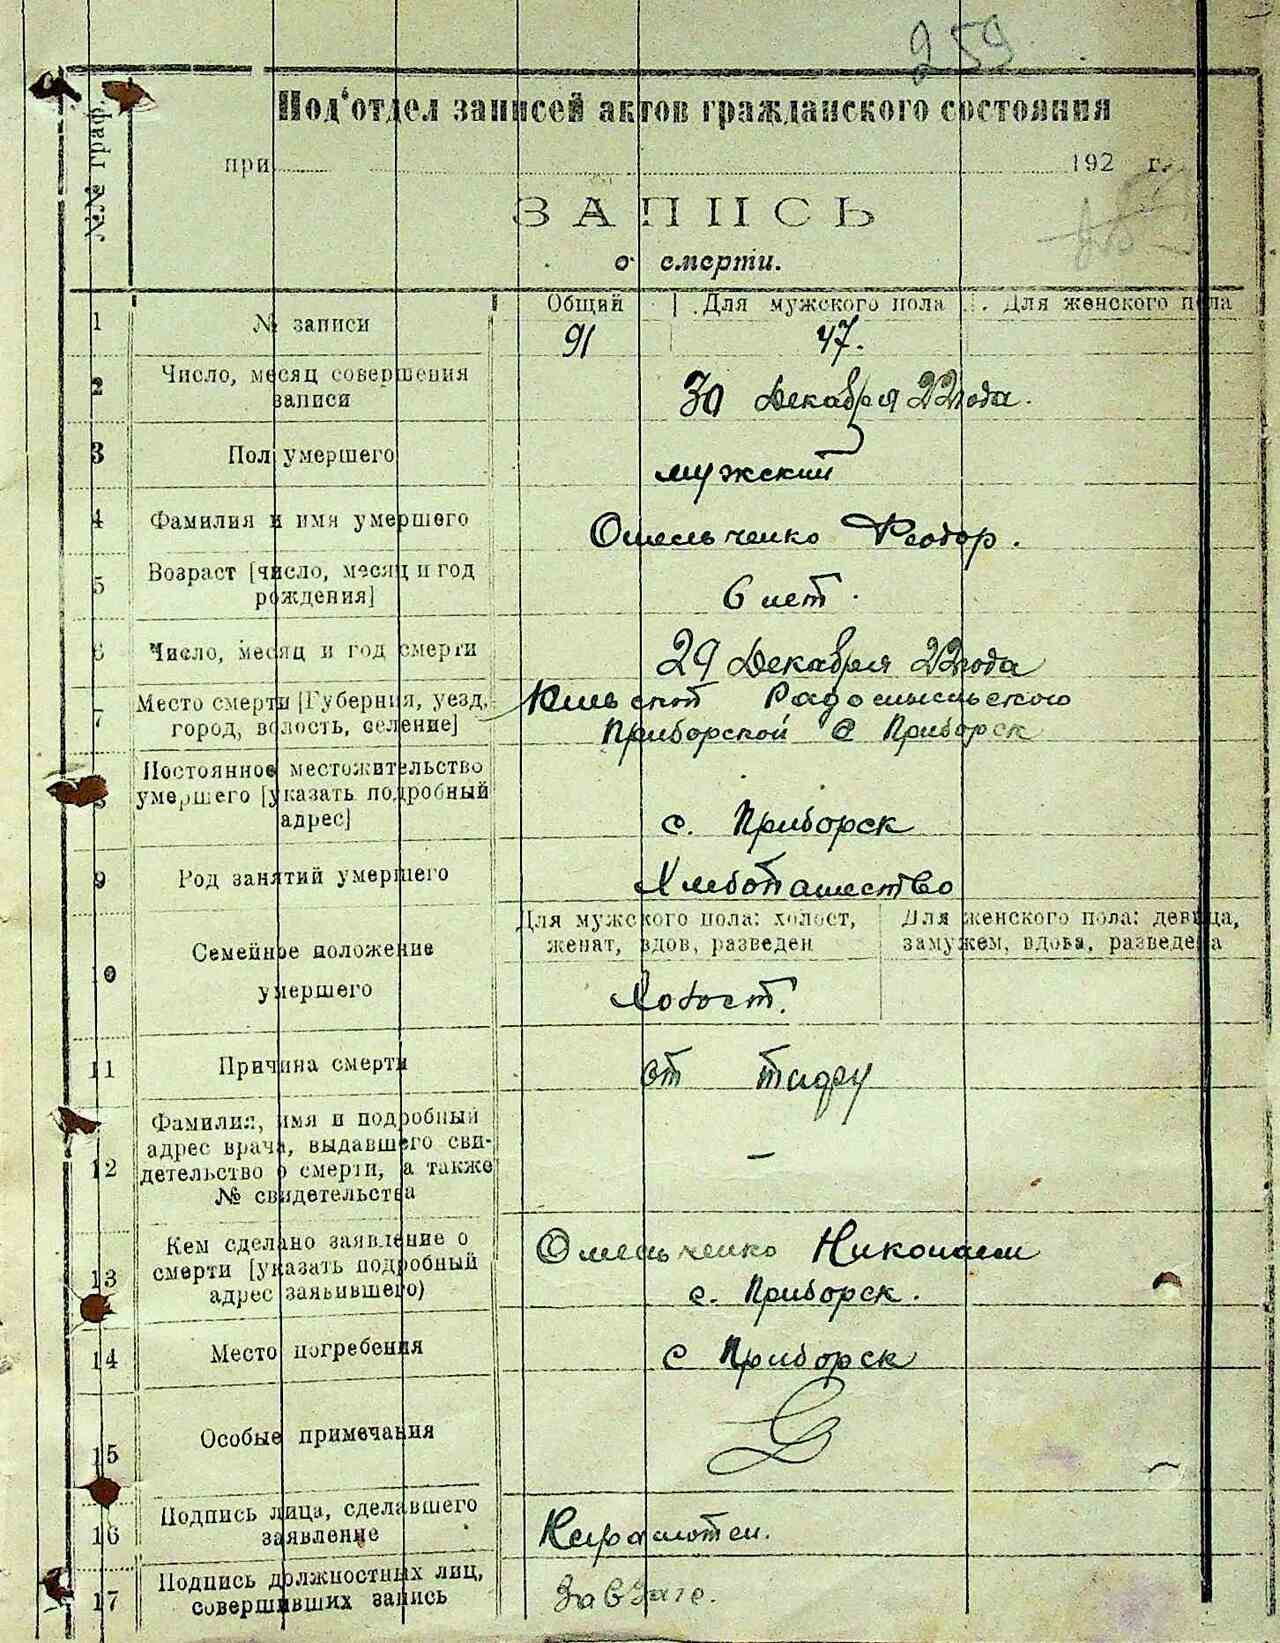 259
Под'отдел записей актов гражданского состояния
№№ граф.
при 192 г.
ЗАПИСЬ
о смерти.
Общий Для мужского пола Для женского пола
1 № записи 91 47.
2 Число, месяц совершения
записи 30 Декабря 22 года.
3 Пол умершего мужский
4 Фамилия и имя умершего Омельченко Феодор.
5 Возраст [число, месяц и год
рождения] 6 лет.
6 Число, месяц и год смерти 29 Декабря 22 года
7 Место смерти [Губерния, уезд, Киевской Радомысльского
город, волость, селение] Приборской с Приборск
Постоянное местожительство
8 умершего [указать подробный
адрес] с. Приборск
9 Род занятий умершего Хлебопашество
Для мужского пола: холост, Для женского пола: девица,
женат, вдов, разведен замужем, вдова, разведена
10 Семейное положение
умершего Холост.
11 Причина смерти от тифу
Фамилия, имя и подробный
адрес врача, выдавшего сви-
12 детельство о смерти, а также –
№ свидетельства
Кем сделано заявление о Омельченко Николаем
13 смерти [указать подробный
адрес заявившего) с. Приборск.
14 Место погребения с Приборск
15 Особые примечания
Подпись лица, сделавшего
16 заявление Неграмотен.
Подпись должностных лиц,
17 совершивших запись Зав Загс.